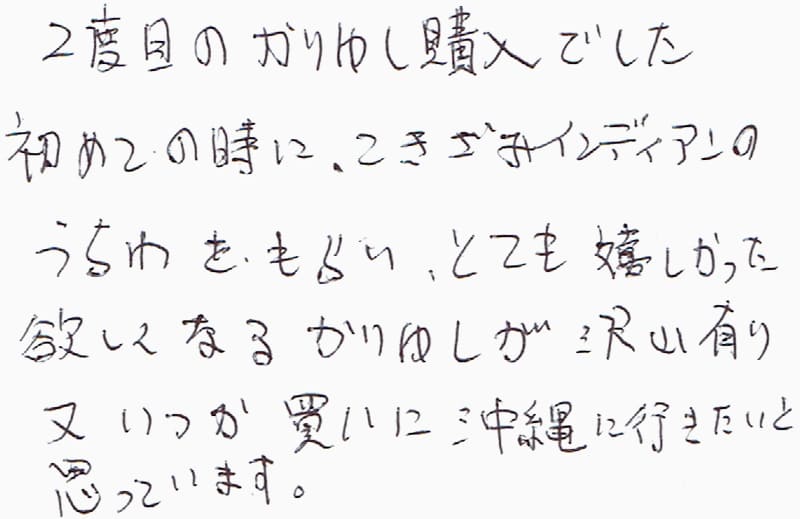 2度目のかりゆし購入でした
初めての時に、こきざみインディアンの
うちわを、もらい、とても嬉しかった
欲しくなるかりゆしが沢山有り
又いつか買いに沖縄に行きたいと
思っています。